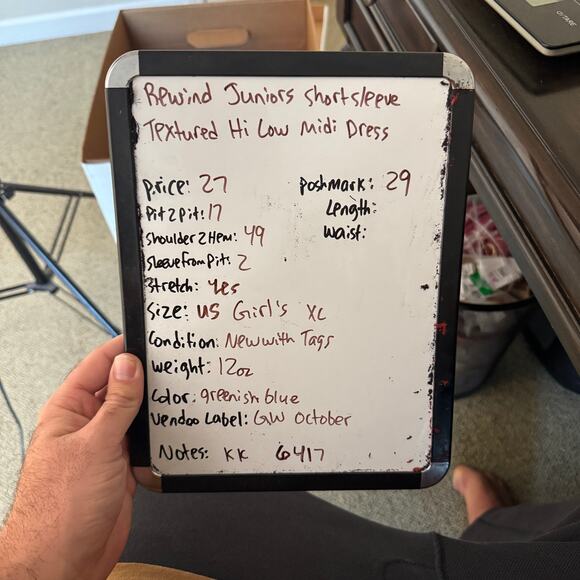 Rewind Juniors Shortsleeve
Textured Hi Low Midi Dress
Price: 27
Poshmark: 29
Pit 2 Pit: 17
Length:
Shoulder 2 Hem: 49
Waist:
Sleeve From Pit: 2
Stretch: Yes
Size: US Girl's XL
Condition: New with Tags
Weight: 12oz
Color: greenish blue
Vendoo Label: GW October
Notes: KK 6417
O/TARE